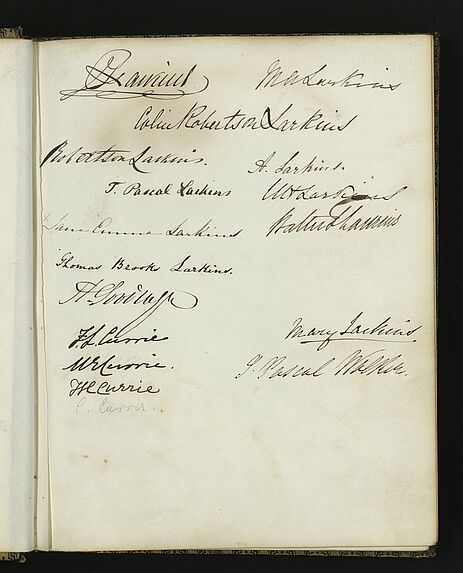 Larkins
M A Larkins
Colin Robertson Larkins
Robertson Larkins.
A. Larkins.
T. Pascal Larkins
W Larkins
Jane Emma Larkins
Walter Larkins
Thomas Brooks Larkins.
F. L. Currie
Mary Larkins.
M R Currie.
J. Pascal Walker.
F H Currie
C. Currie.